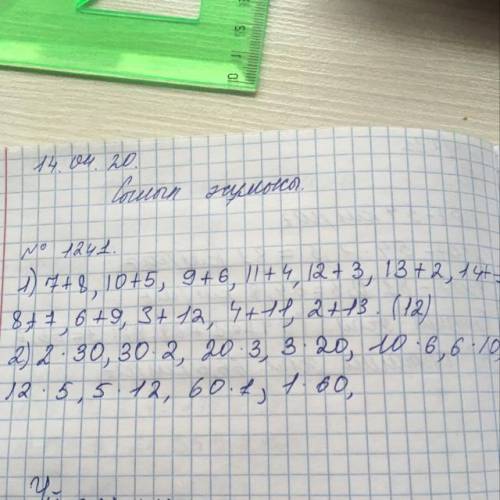 14.04.20.
Сынып жұмысы.
№ 1241.
1) 7+8, 10+5, 9+6, 11+4, 12+3, 13+2, 14+
8+7, 6+9, 3+12, 4+11, 2+13. (12)
2) 2·30, 30·2, 20·3, 3·20, 10·6, 6·10,
12·5, 5·12, 60·1, 1·60,